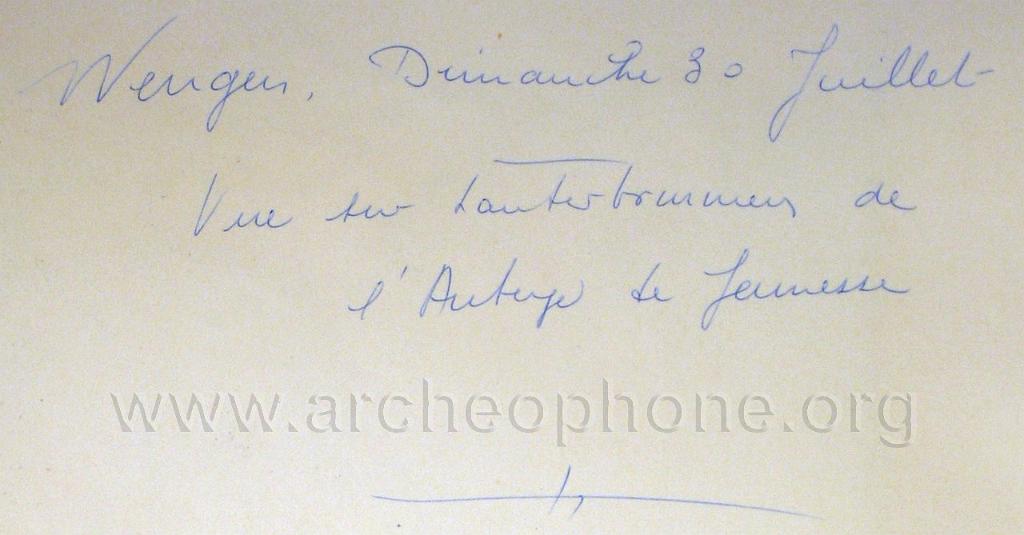 Wengen, Dimanche 30 Juillet
Vue sur Lauterbrunnen de
l'Auberge de Jeunesse
www.archeophone.org